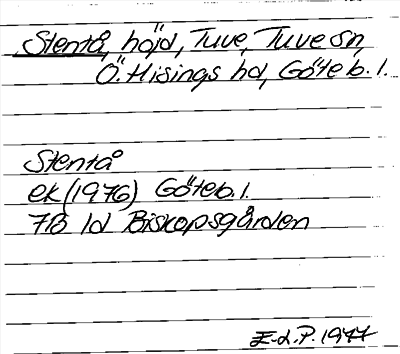 Stentå, höjd, Tuve, Tuve sn,
Ö. Hisings hd, Göteb. l.
Stentå
ek (1976) Göteb. l.
7B 1d Biskopsgården
E.d.P. 1977